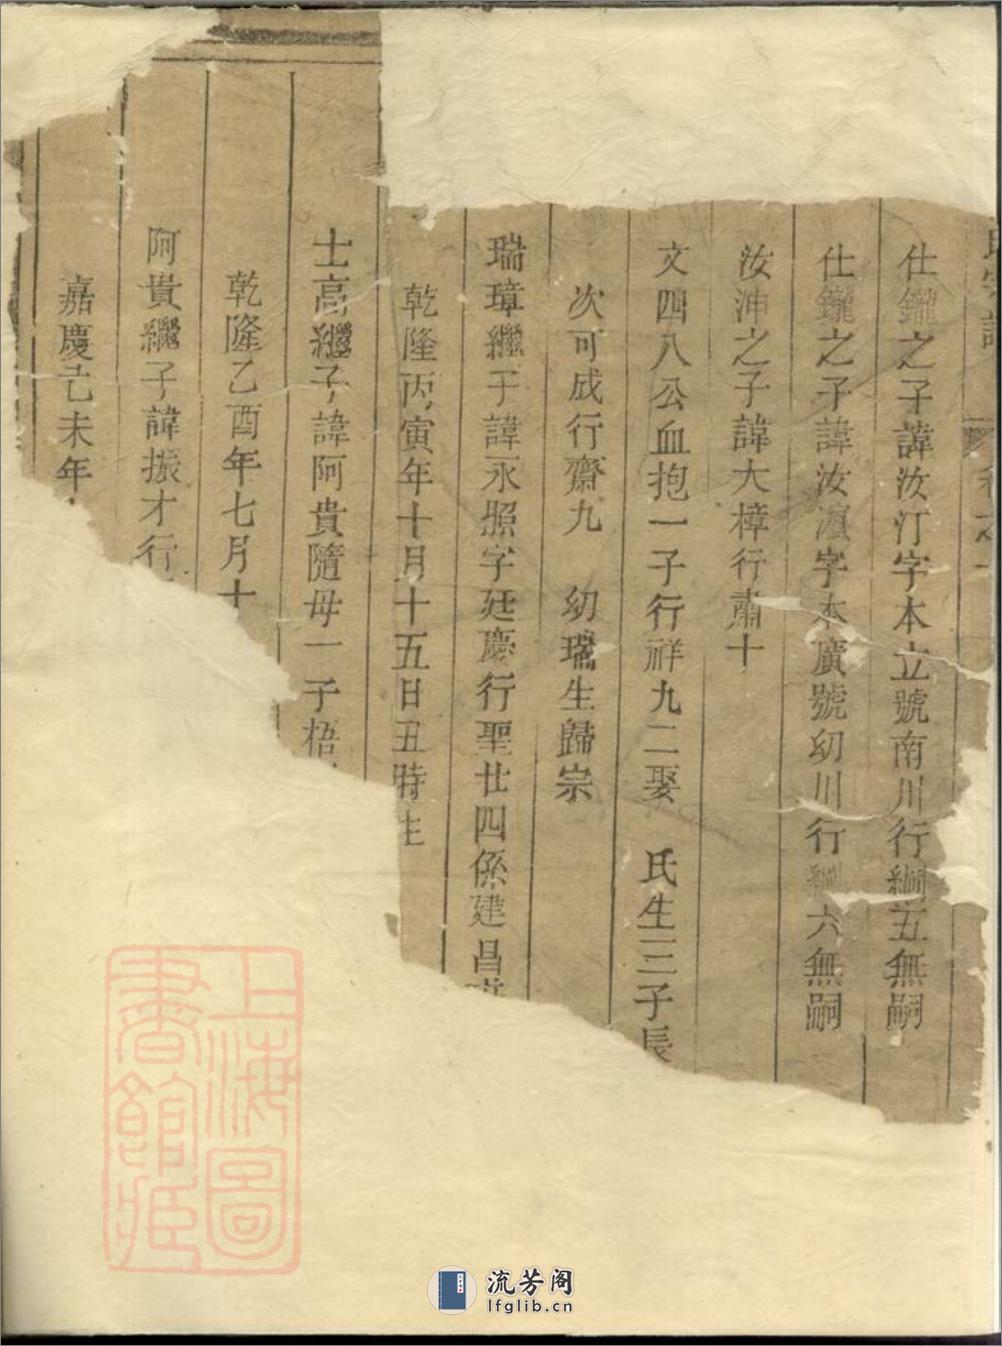 氏宗譜 卷之一
仕鑨之子諱汝汀字本立號南川行綱五無嗣
仕鑨之子諱汝濵字本廣號幼川行綱六無嗣
汝浀之子諱大樟行肅十
文四八公血抱一子行祥九二娶 氏生三子長
次可成行齋九 幼瑞生歸宗
瑞璋繼子諱永照字廷慶行聖廿四係建昌
乾隆丙寅年十月十五日丑時生
士高繼子諱阿貴隨母一子梧
乾隆乙酉年七月十
阿貴繼子諱振才行
嘉慶己未年
上海圖書館藏
流芳阁
lfglib.cn